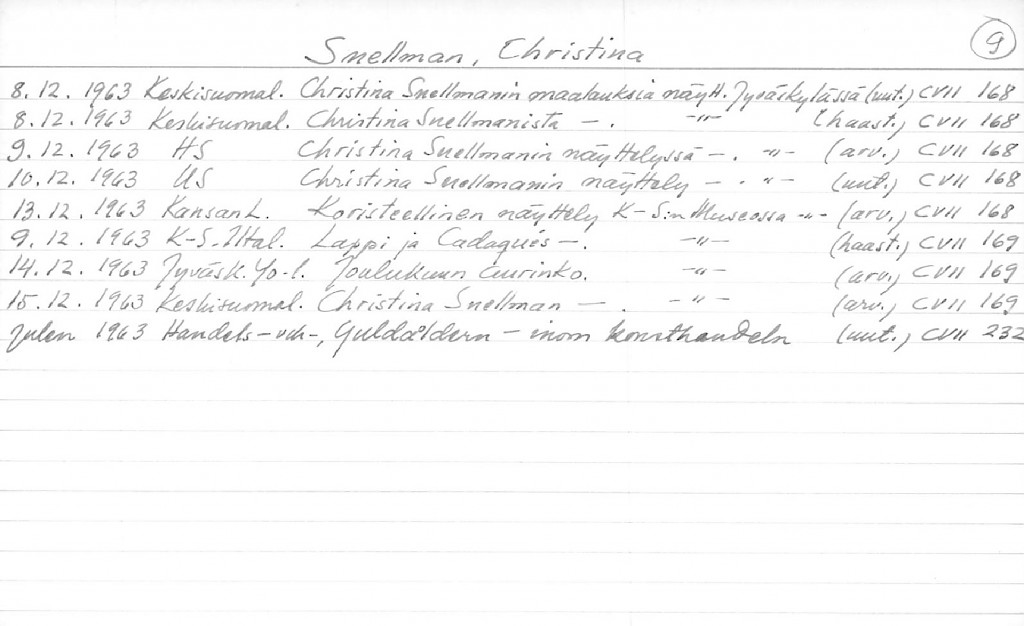 9
Snellman, Christina
8.12. 1963 Keskisuomal. Christina Snellmanin maalauksia näytt. Jyväskylässä (uut.) CVII 168
8.12. 1963 Keskisuomal. Christina Snellmanista —. -"- (haast.) CVII 168
9.12. 1963 HS Christina Snellmanin näyttelyssä —. -"- (arv.) CVII 168
10.12. 1963 US Christina Snellmanin näyttely — . -"- (uut.) CVII 168
13.12. 1963 Kansan L. Koristeellinen näyttely K-S:n Museossa -"- (arv.) CVII 168
9.12. 1963 K-S. Iltal. Lappi ja Cadaqués —. -"- (haast.) CVII 169
14.12. 1963 Jyväsk. Yo-l. Joulukuun aurinko. -"- (arv.) CVII 169
15.12. 1963 Keskisuomal. Christina Snellman — . -"- (arv.) CVII 169
Julen 1963 Handels- och-, Guldåldern - inom konsthandeln (uut.) CVII 232